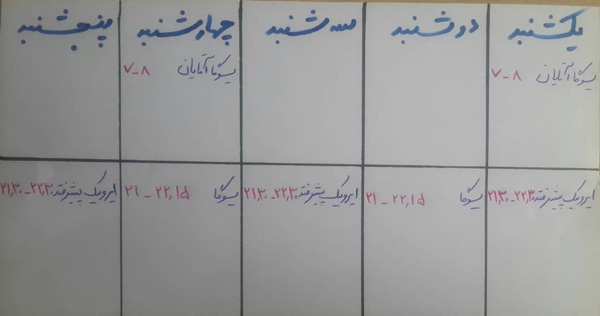 یکشنبه
دوشنبه
سه شنبه
چهارشنبه
پنجشنبه
یوگا آقایان ۷-۸
یوگا آقایان ۷-۸
ایروبیک پیشرفته ۲۱,۳۰-۲۲,۳۰
یوگا ۲۱-۲۲,۱۵
ایروبیک پیشرفته ۲۱,۳۰-۲۲,۳۰
یوگا ۲۱-۲۲,۱۵
ایروبیک پیشرفته ۲۱,۳۰-۲۲,۳۰